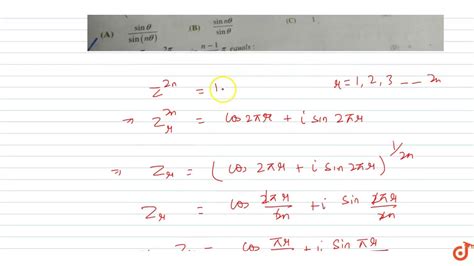 (A) sinθ / sin(nθ) (B) sin nθ / sinθ (C) 1
n-1 equals :
z^2n = 1. r = 1, 2, 3 --- 2n
⇒ z_r^2n = cos 2πr + i sin 2πr
⇒ z_r = (cos 2πr + i sin 2πr)^1/2n
z_r = cos 2πr/2n + i sin 2πr/2n
cos πr + i sin πr